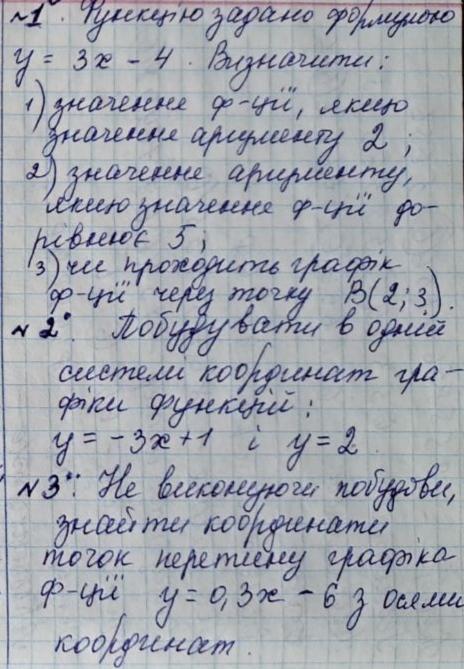 №1°. Функцію задано формулою
y = 3x - 4. Визначити:
1) значенне ф-ції, якщо
значенне аргументу 2;
2) значенне аргументу,
якщо значенне ф-ції до-
рівнює 5;
3) чи проходить графік
ф-ції через точку В(2; 3).
№2°. Побудувати в одній
системі координат гра-
фіки функцій:
y = -3x+1 і y=2
№3°. Не виконуючи побудови,
знайти координати
точок перетину графіка
ф-ції y=0,3x - 6 з осями
координат.